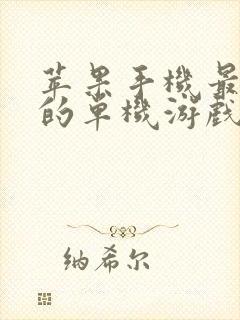 苹果手機最
的单機游戲
纳希尔